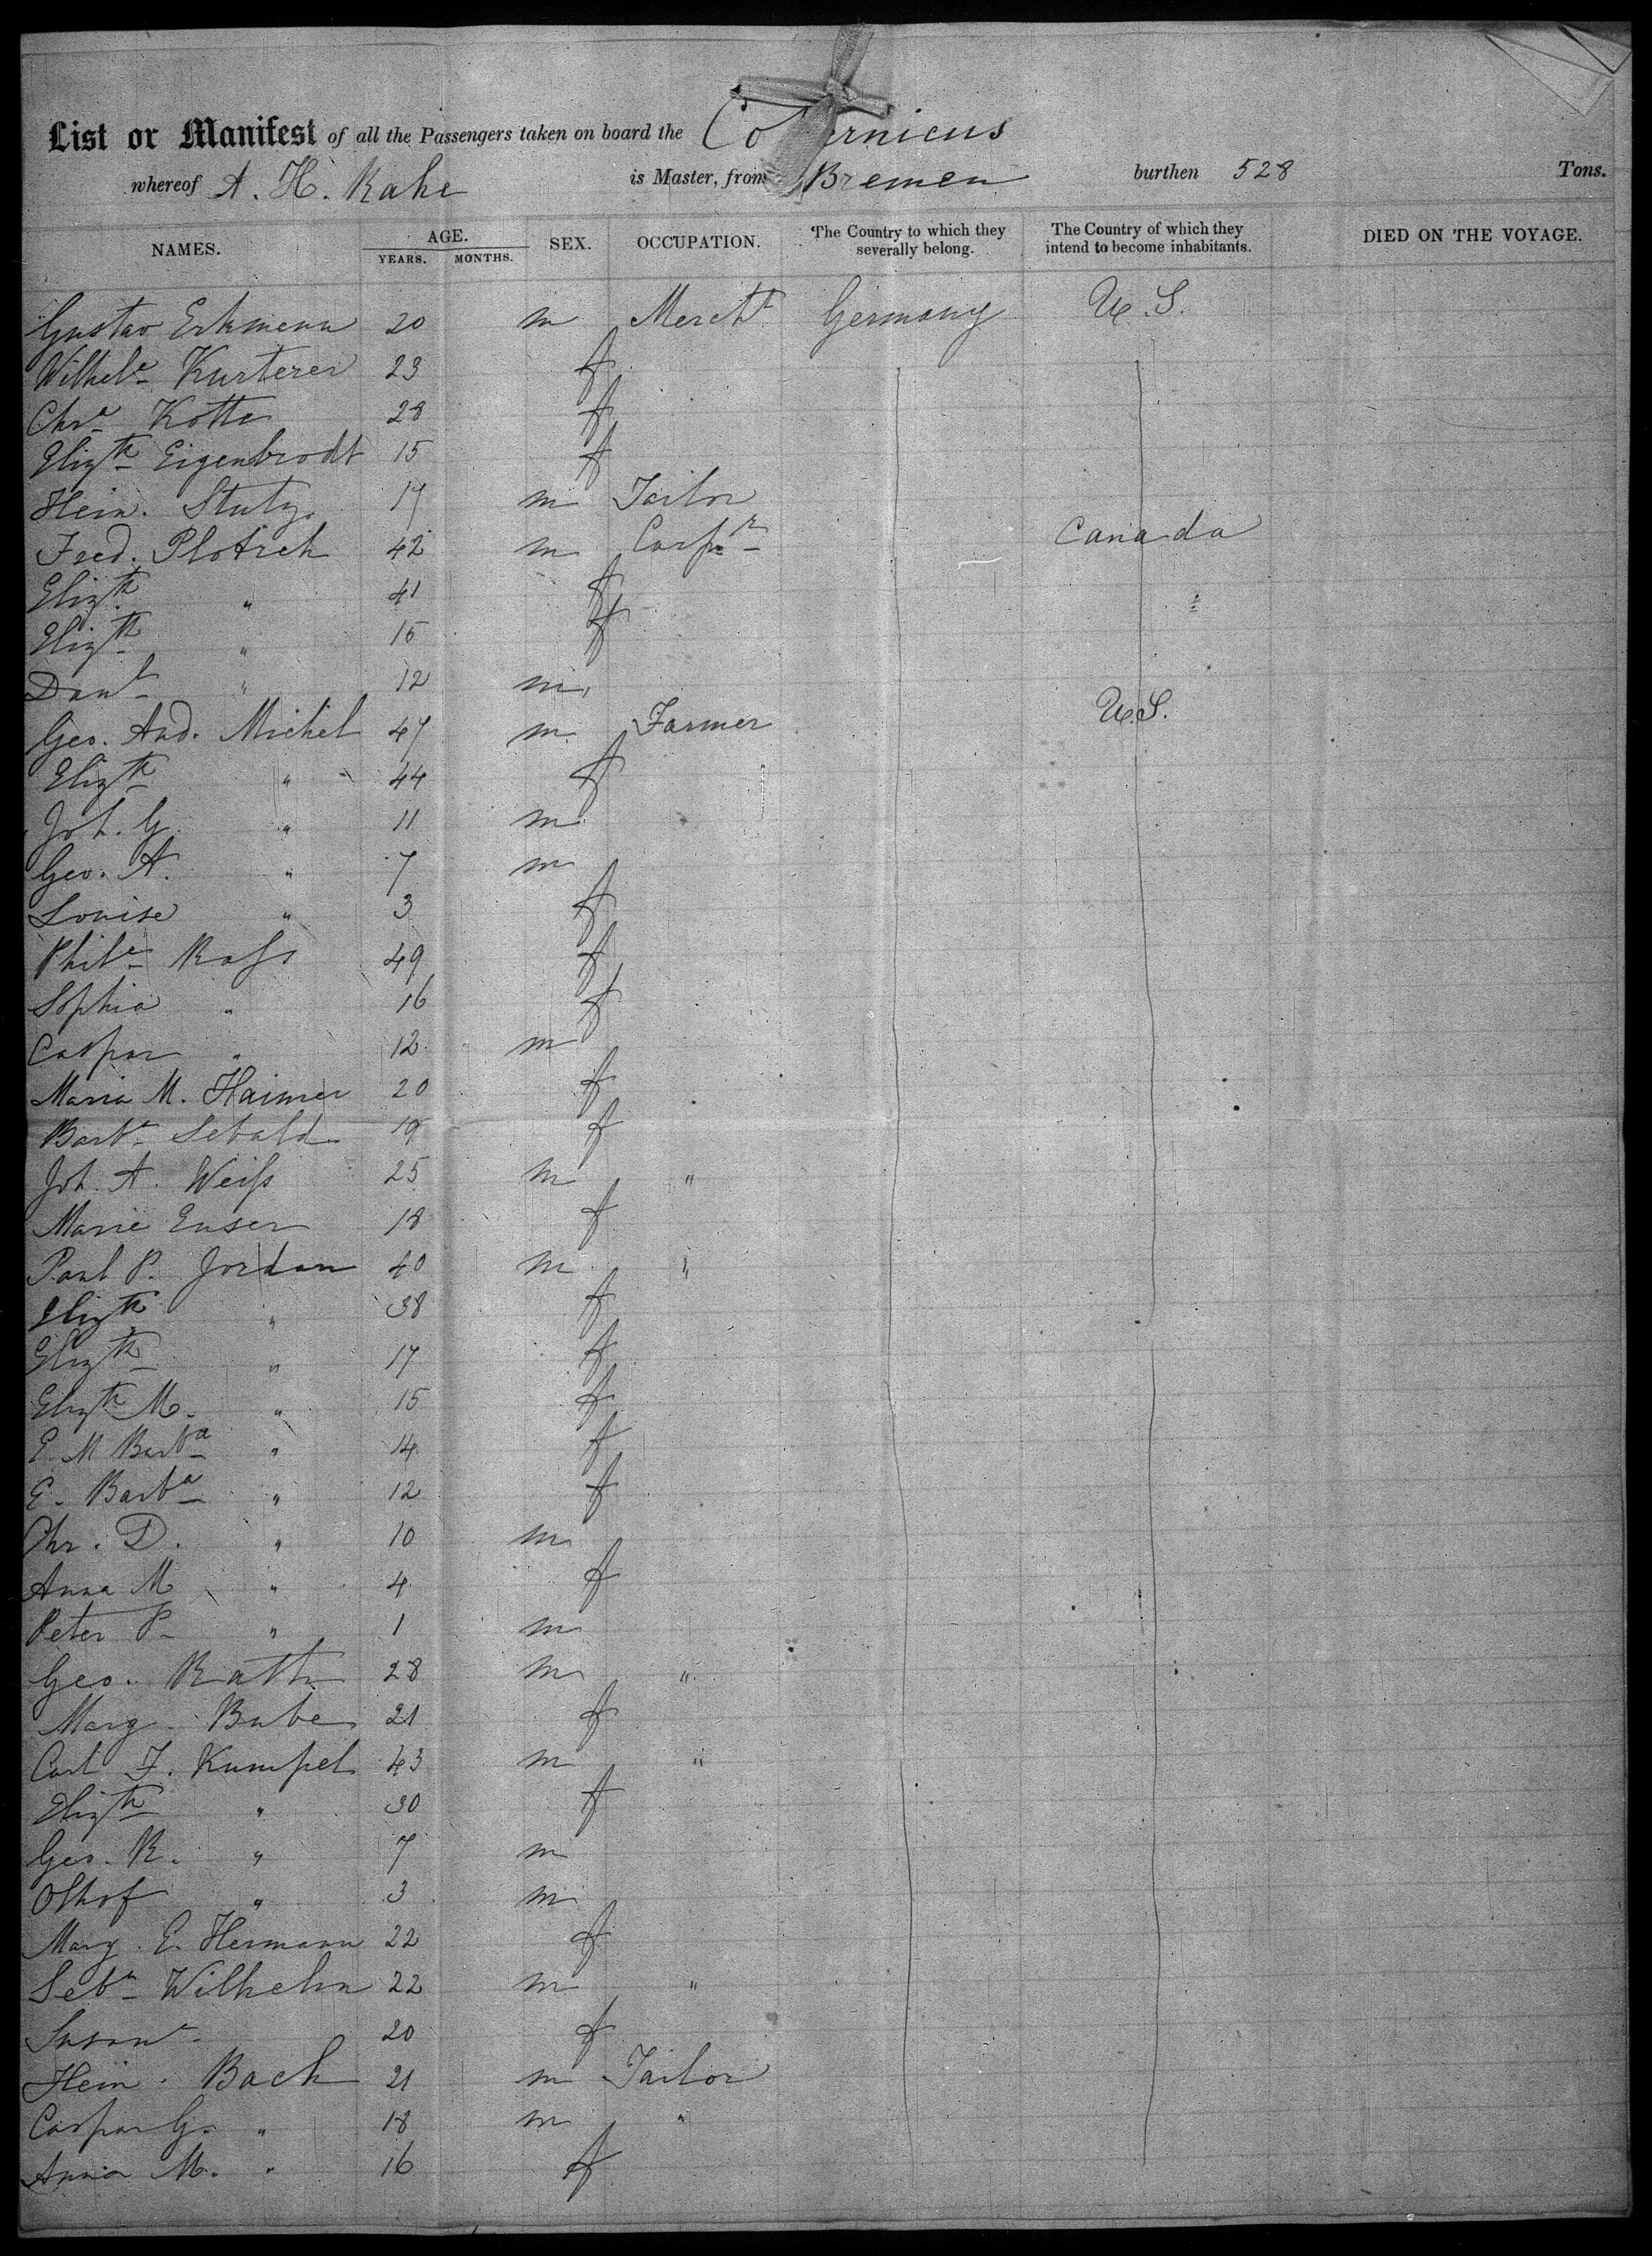 List or Manifest of all the Passengers taken on board the Copernicus
whereof A. H. Rahe is Master, from Bremen burthen 528 Tons.
NAMES. AGE. YEARS. MONTHS. SEX. OCCUPATION. The Country to which they severally belong. The Country of which they intend to become inhabitants. DIED ON THE VOYAGE.
Gustav Erkmenn 20 m Mercht Germany U.S.
Wilhele Kurterer 23 f
Chre Kotte 28 f
Elizth Eigenbrodt 15 f
Hein. Stutz 17 m Tailor
Fred. Plotsch 42 m Carpr Canada
Elizth " 41 f
Elizth " 15 f
Danl " 12 m
Geo. And. Michel 47 m Farmer U.S.
Elizth " 44 f
Joh. G. " 11 m
Geo. A. " 7 m
Louise " 3 f
Phile Rofs 49 f
Sophia " 16 f
Caspar " 12 m
Maria M. Haimer 20 f
Barba Sebald 19 f
Joh. A. Weifs 25 m "
Marie Enser 18 f
Paul P. Jordan 40 m "
Elizth " 38 f
Elizth " 17 f
Elizth M. " 15 f
E. M Barba " 14 f
E. Barba " 12 f
Chr. D. " 10 m
Anna M " 4 f
Peter P " 1 m
Geo. Rath 28 m "
Marg. Bube 21 f
Carl F. Kumpel 43 m "
Elizth " 30 f
Geo. R. " 7 m
" 3 m
Marg. E. Hermann 22 f
Sebn Wilhelm 22 m "
Susane 20 f
Hein. Bach 21 m Tailor
Caspar G. " 18 m "
Anna M. " 16 f